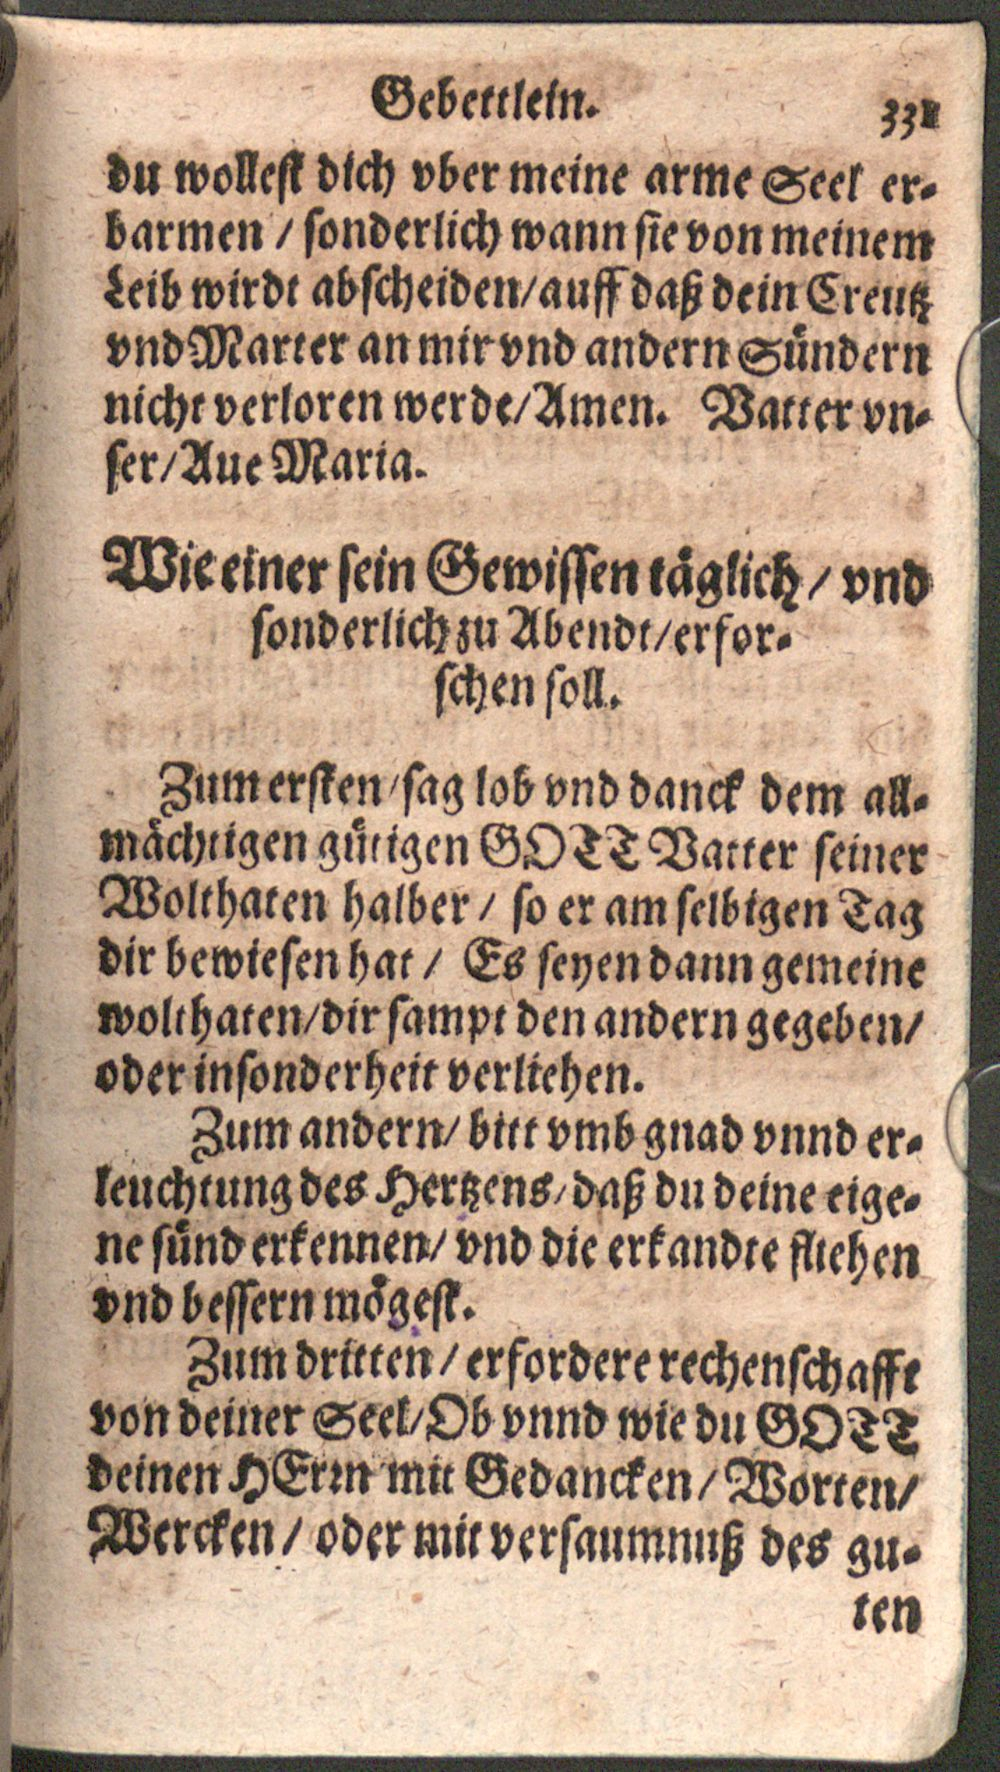 Gebettlein. 331
du wollest dich vber meine arme Seel er-
barmen / sonderlich wann sie von meinem
Leib wirdt abscheiden/auff daß dein Creutz
vnd Marter an mir vnd andern Sündern
nicht verloren werde/Amen. Vatter vn-
ser/Aue Maria.
Wie einer sein Gewissen täglich / vnd
sonderlich zu Abendt/erfor-
schen soll.
Zum ersten/sag lob vnd danck dem all-
mächtigen gütigen GOTT Vatter seiner
Wolthaten halber / so er am selbigen Tag
dir bewiesen hat / Es seyen dann gemeine
wolthaten/dir sampt den andern gegeben/
oder insonderheit verliehen.
Zum andern/ bitt vmb gnad vnnd er-
leuchtung des Hertzens/daß du deine eige-
ne sünd erkennen/ vnd die erkandte fliehen
vnd bessern mögest.
Zum dritten / erfordere rechenschafft
von deiner Seel/Ob vnnd wie du GOTT
deinen HErrn mit Gedancken / Worten/
Wercken / oder mit versaumnuß des gu-
ten